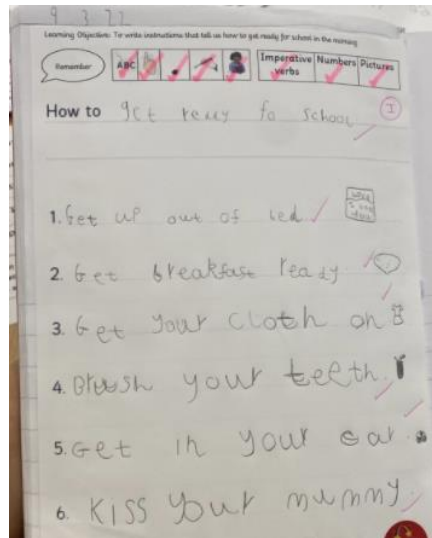 9.3.22
Learning Objective: To write instructions that tell us how to get ready for school in the morning
Remember
ABC
Imperative verbs
Numbers
Pictures
How to get reay fo school
I
1. Get up out of bed
2. Get breakfast ready
3. Get your cloth on
4. Brush your teeth.
5. Get in your car.
6. Kiss your mummy.